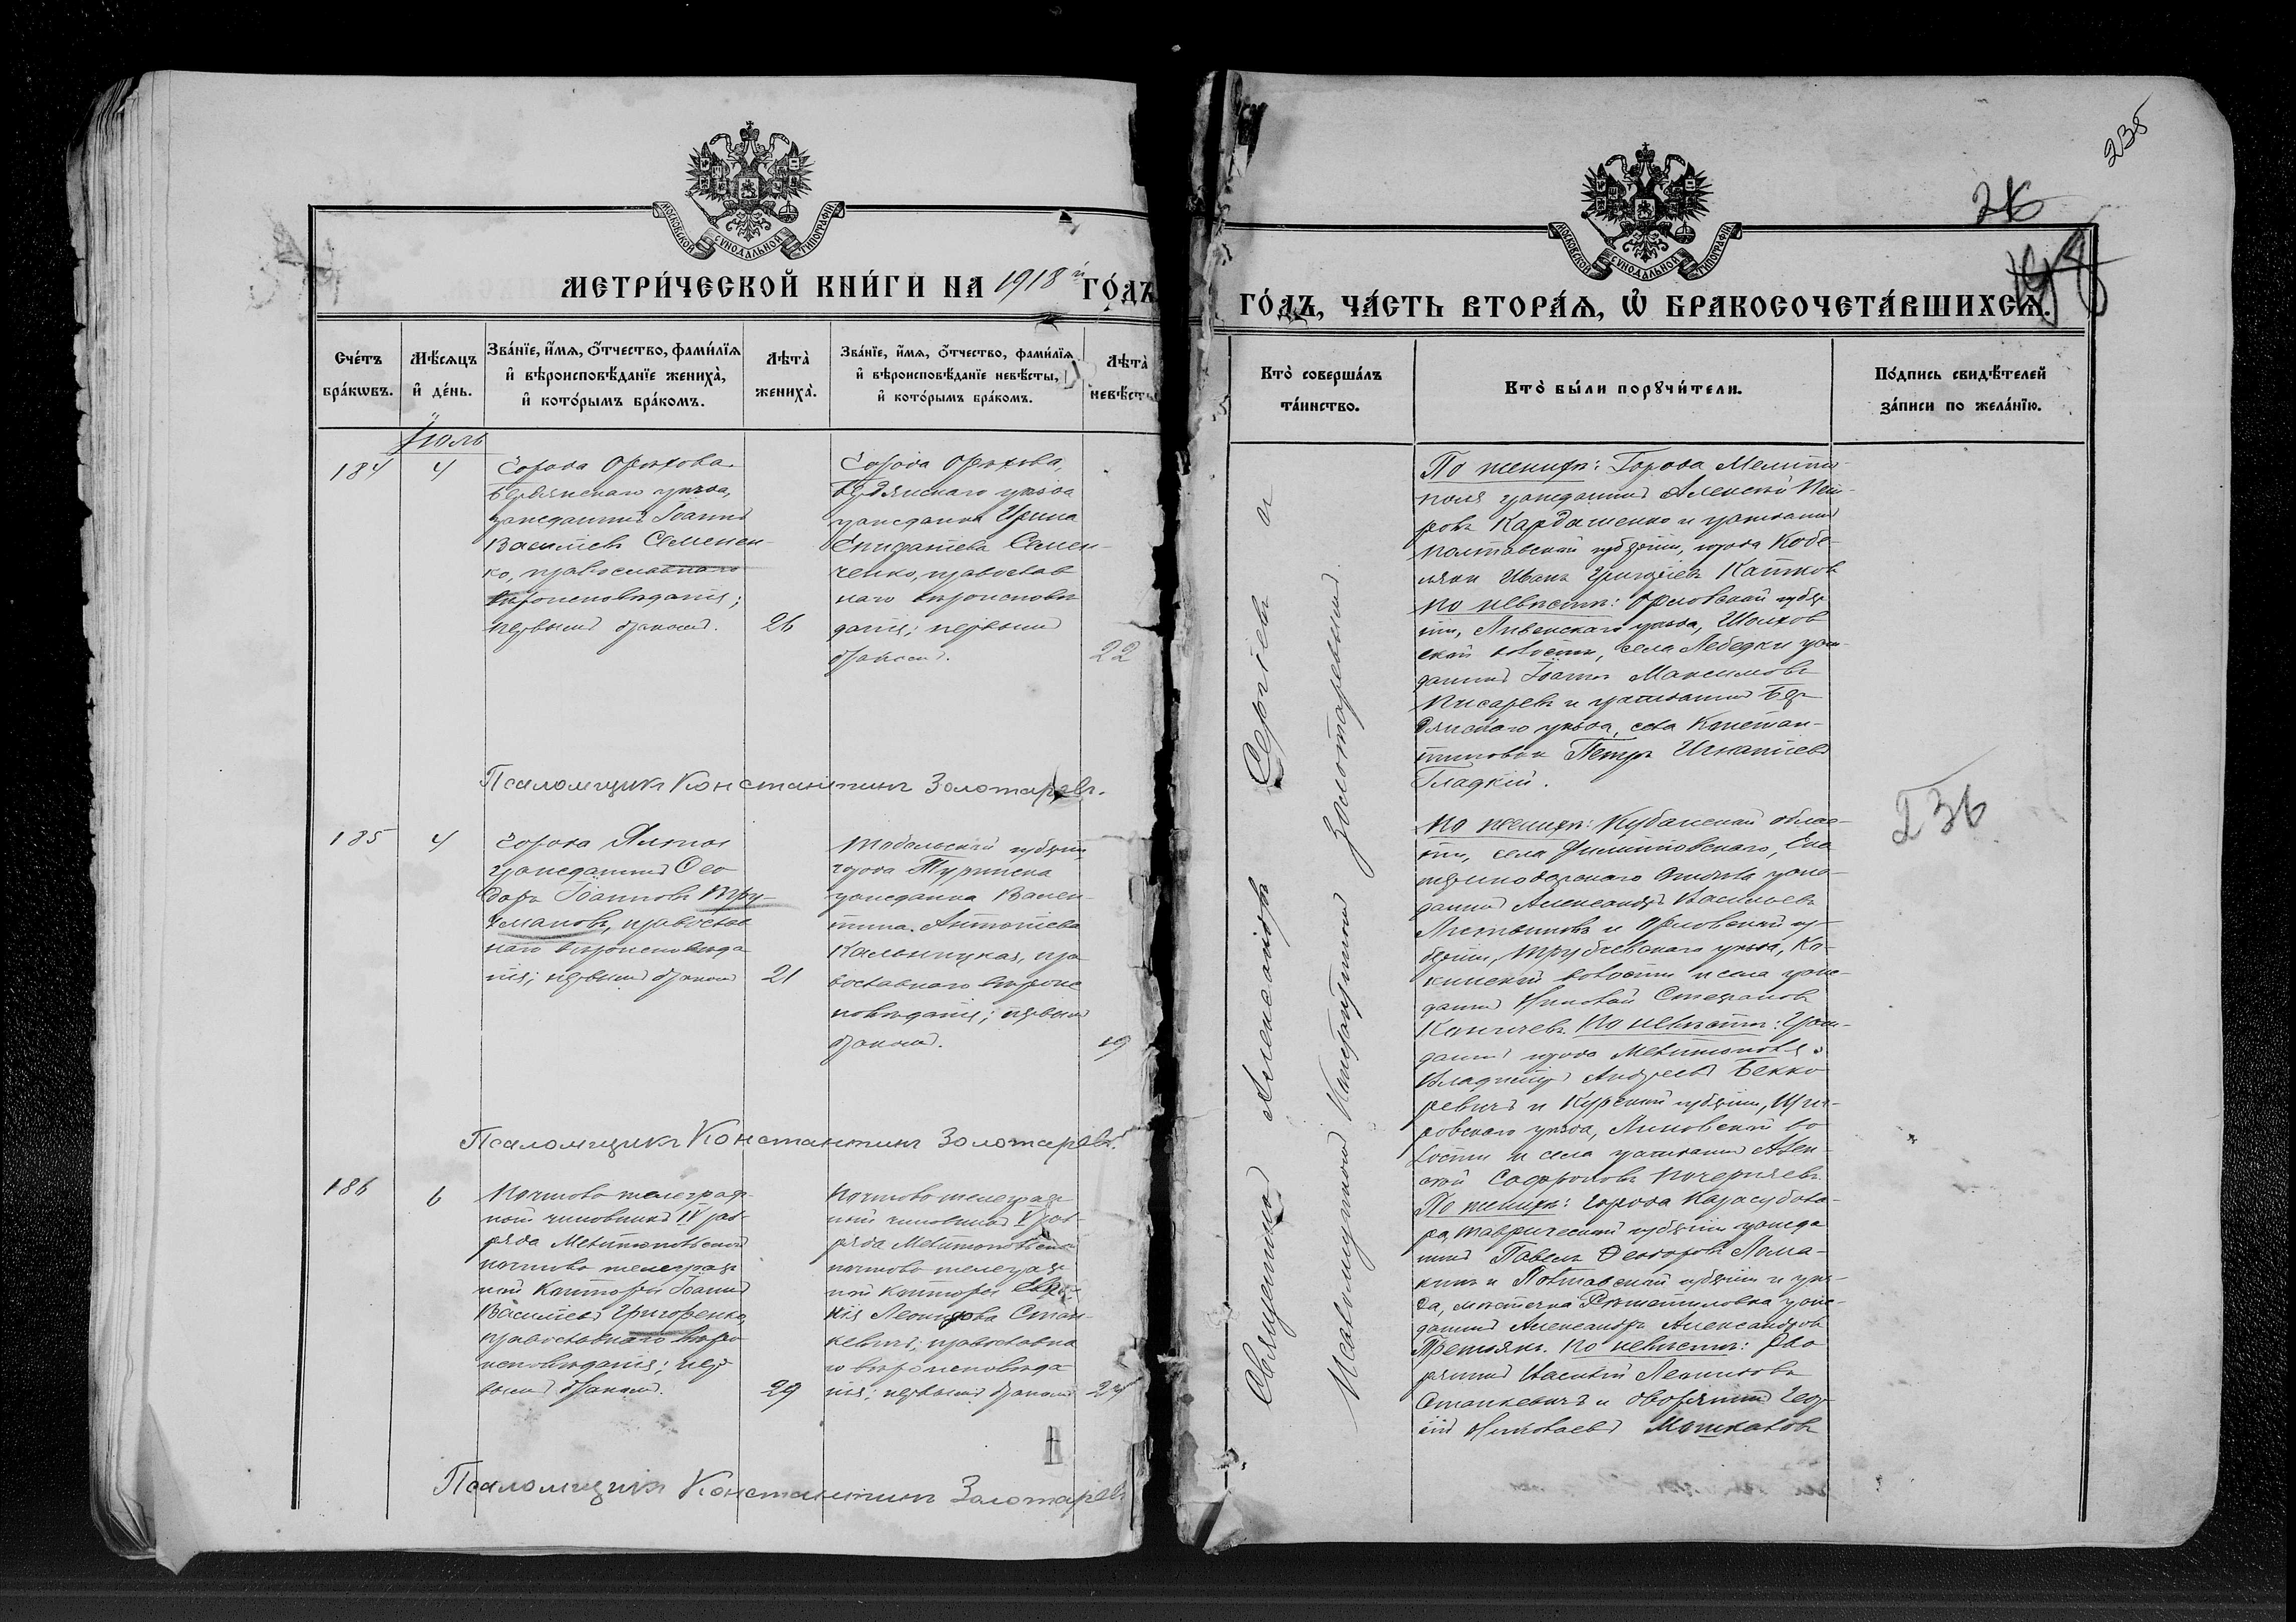 МОСКОВСКОЙ СУНОДАЛЬНОЙ ТИПОГРАФІИ
МЕТРИ́ЧЕСКОЙ КНИ́ГИ НА 1918 й ГО́ДЪ
Сче́тъ бра́кѡвъ.
Мѣ́сяцъ и҆ де́нь.
Зва́нїе, и҆́мѧ, ѻ҆́тчество, фами́лїѧ
и҆ вѣроисповѣ́данїе жениха̀,
и҆ кото́рымъ бра́комъ.
Лѣта̀ жениха̀.
Зва́нїе, и҆́мѧ, ѻ҆́тчество, фами́лїѧ
и҆ вѣроисповѣ́данїе невѣ́сты,
и҆ кото́рымъ бра́комъ.
Лѣта̀
Іюль
184
4
Города Орѣхова
Бердянскаго уѣзда,
гражданинъ Іоаннъ
Васильевъ Семенен-
ко, православнаго
вѣроисповѣданія;
первымъ бракомъ.
26
Города Орѣхова,
Бердянскаго уѣзда
гражданка Ирина
Семен-
ченко, православ
наго вѣроисповѣ
данія; первымъ
бракомъ.
22
Псаломщикъ Константинъ Золотаревъ.
185
4
Города Ялты
гражданинъ Ѳео
доръ Іоанновъ Тру-
хмановъ, православ
наго вѣроисповѣда
нія; первымъ бракомъ
21
Тобольской губерніи,
города Туринска
гражданка Вален-
тина Антоніева
пра
вославнаго вѣроис
повѣданія; первымъ
бракомъ.
19
Псаломщикъ Константинъ Золотаревъ.
186
6
Почтово телеграф-
ный чиновникъ IV раз-
ряда Мелитопольской
почтово телеграф
ной Конторы Іоаннъ
Васильевъ Григоренко,
православнаго вѣро
исповѣданія; пер
вымъ бракомъ.
29
Почтово телеграф
ный чиновникъ V раз-
ряда Мелитопольской
почтово телеграф
ной Конторы
нія Леонидова Стан-
кевичъ; православна
го вѣроисповѣда
нія; первымъ бракомъ
Псаломщикъ Константинъ Золотаревъ
235
ГО́ДЪ, ЧА́СТЬ ВТОРА́Ѧ, Ѡ҆ БРАКОСОЧЕТА́ВШИХСѦ.
Кто̀ соверша́лъ
та́инство.
Кто̀ бы́ли порꙋчи́тели.
По́дпись свидѣ́телей
за́писи по жела́нїю.
Священникъ Александръ Сергіевъ съ
Псаломщикомъ Константиномъ Золотаревымъ
По женихѣ: Города Мелито-
поля гражданинъ Алексѣй Пет-
ровъ Кардашенко и гражданинъ
Полтавской губерніи, города Кобе-
ляки Иванъ Григоріевъ
По невѣстѣ: Орловской губер
ніи, Ливенскаго уѣзда,
ской волости, села Лебедки граж-
данинъ Іоаннъ Максимовъ
Писаревъ и гражданинъ Бер-
дянскаго уѣзда, села Констан-
тиновки Петръ Игнатіевъ
Гладкій.
По женихѣ: Кубанской облас-
ти, села Филипповскаго, Ека
теринодарскаго Отдѣла граж-
данинъ Александръ Васильевъ
Литвиновъ и Орловской гу-
берніи, Трубчевскаго уѣзда, Ко-
кинской волости и села граж-
данинъ Николай Стефановъ
По невѣстѣ: Граж-
данинъ города Мелитополя
Владиміръ Андреевъ Бекко
ревичъ и Курской губерніи, Щиг-
ровскаго уѣзда, Липовской во
лости и села гражданинъ Алек-
сѣй Софроновъ
По женихѣ: Города Карасубаза-
ра, Таврической губерніи гражда
нинъ Павелъ Ѳеодоровъ Лома-
кинъ и Полтавской губерніи и уѣз-
да, мѣстечка Рѣшетиловка граж-
данинъ Александръ Александров
Третьякъ. По невѣстѣ: Дво
рянинъ Василій Леонидовъ
Станкевичъ и дворянинъ Геор-
гій Николаевъ
236